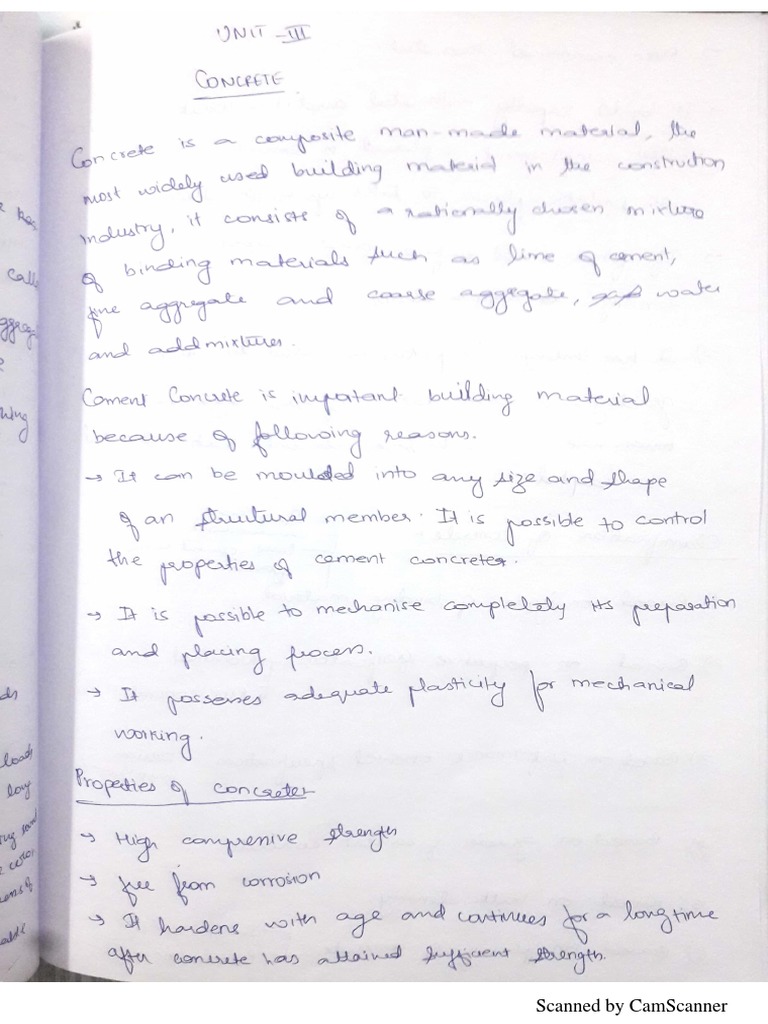 UNIT - III
CONCRETE
Concrete is a composite man-made material, the
most widely used building material in the construction
industry, it consists of a rationally chosen mixture
of binding materials such as lime of cement,
fine aggregate and coarse aggregate, water
and addmixtures.
Cement Concrete is important building material
because of following reasons.
→ It can be moulded into any size and shape
of an structural member. It is possible to control
the properties of cement concretes.
→ It is possible to mechanise completely its preparation
and placing process.
→ It possesses adequate plasticity for mechanical
working.
Properties of concrete
→ High compressive strength
→ free from corrosion
→ It hardens with age and continues for a long time
after concrete has attained sufficient strength.
calle
wing
loads
long
Scanned by CamScanner